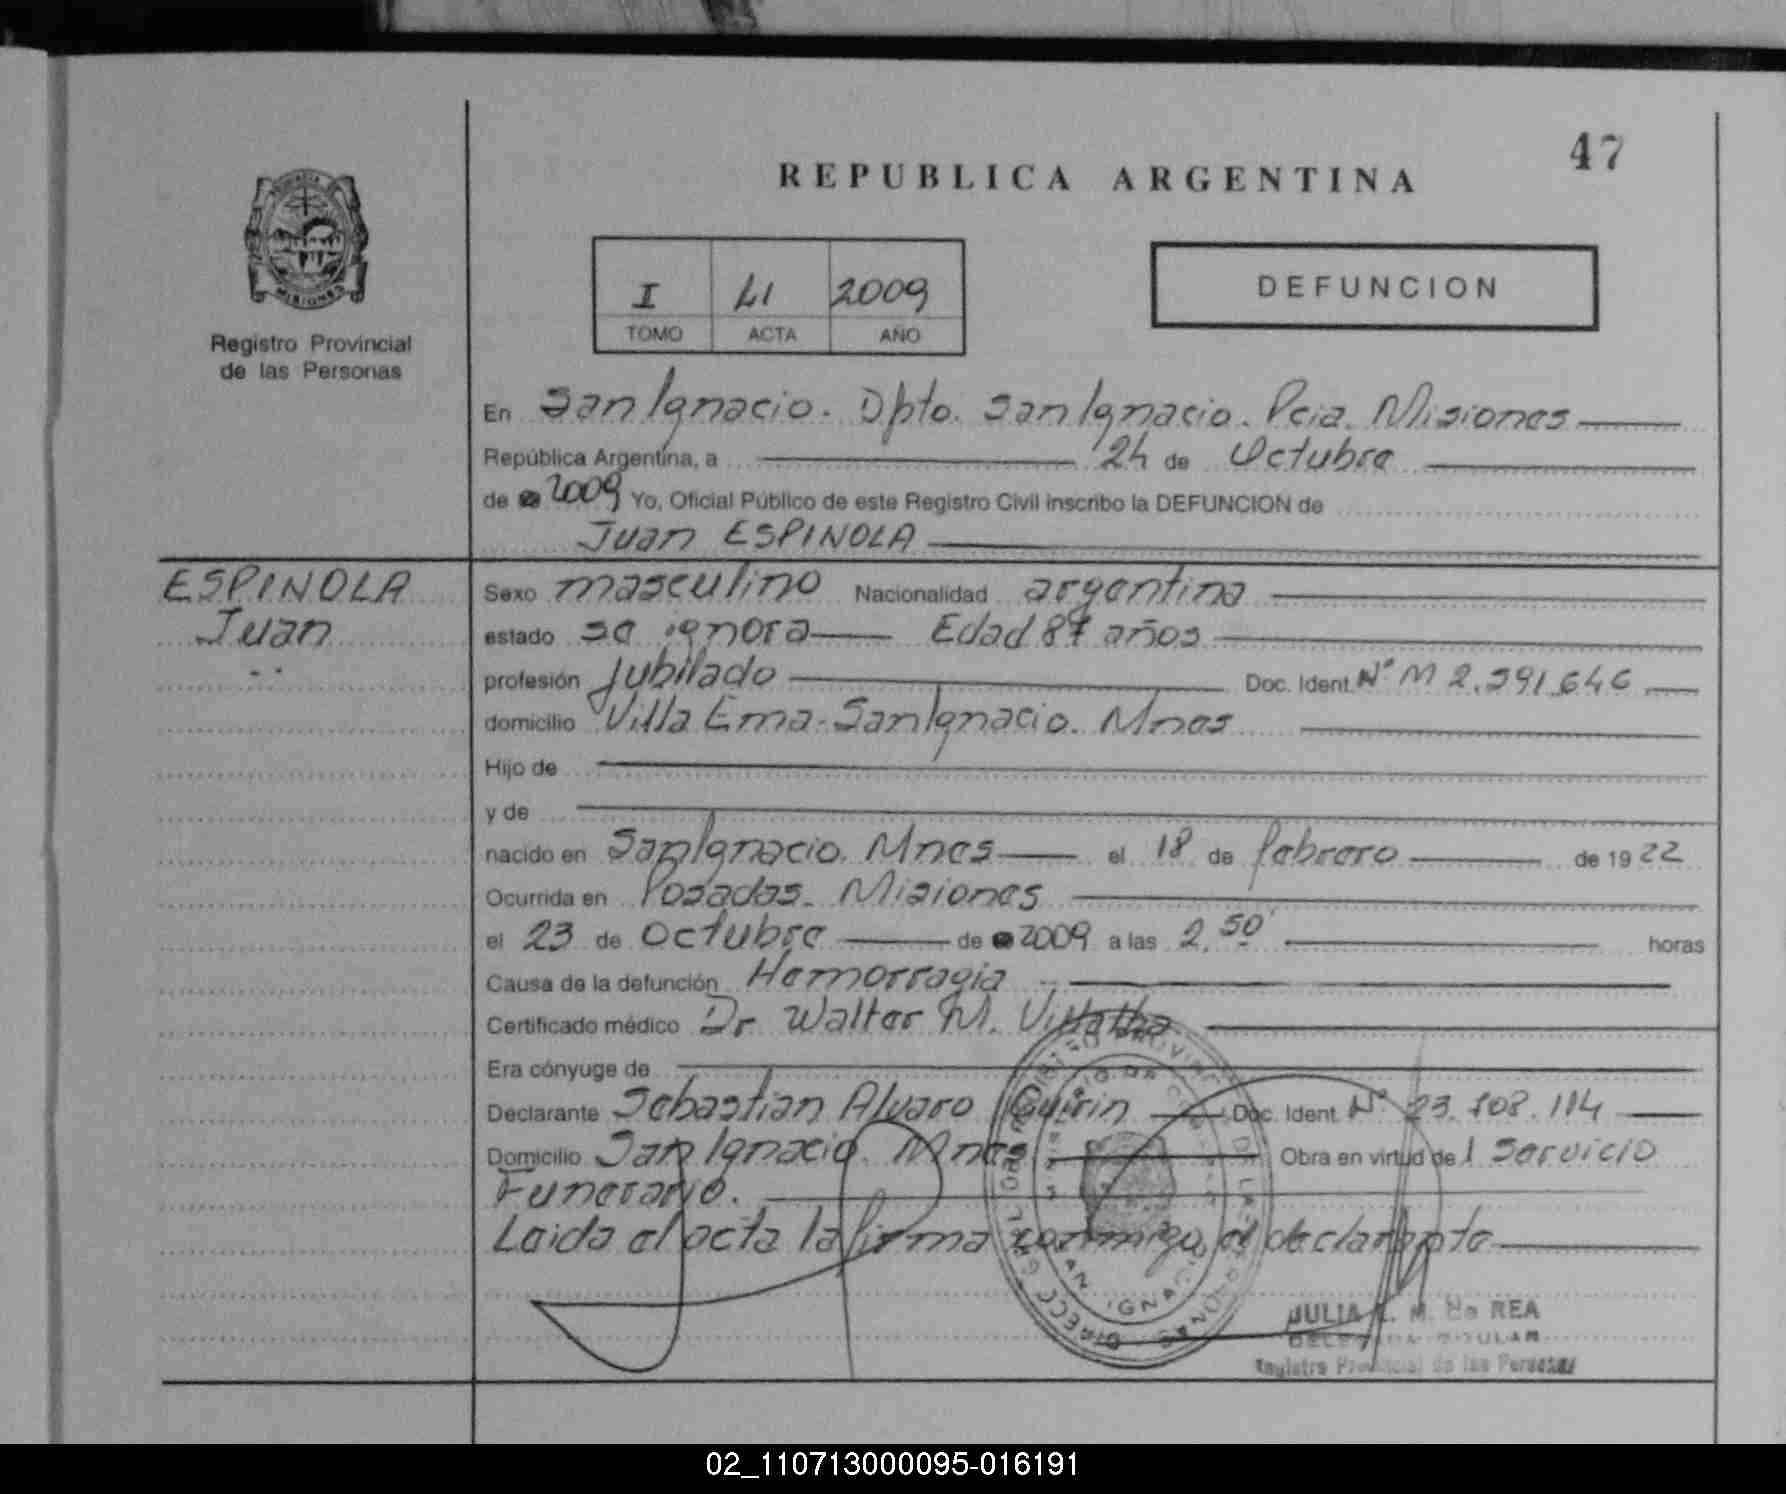 47
REPUBLICA ARGENTINA
MISIONES
Registro Provincial
de las Personas
I LI 2009
TOMO ACTA AÑO
DEFUNCION
En San Ignacio. Dpto. San Ignacio. Pcia. Misiones
República Argentina, a 24 de Octubre
de 2009 Yo, Oficial Público de este Registro Civil inscribo la DEFUNCION de
Juan ESPINOLA
ESPINOLA
Juan
Sexo masculino Nacionalidad argentina
estado se ignora Edad 87 años
profesión Jubilado Doc. Ident. Nº M 2.391.646
domicilio Villa Ema - San Ignacio. Mnes
Hijo de
y de
nacido en San Ignacio. Mnes el 18 de febrero de 1922
Ocurrida en Posadas. Misiones
el 23 de Octubre de 2009 a las 2,50 horas
Causa de la defunción Hemorragia
Certificado médico Dr Walter M.
Era cónyuge de
Declarante Sebastian Alvaro Guirin Doc. Ident. Nº 23.808.114
Domicilio San Ignacio. Mnes Obra en virtud de / Servicio
Funerario.
Leida el acta la firma conmigo el declarante
JULIA M. de REA
DELEGADA TITULAR
Registro Provincial de las Personas
02_110713000095-016191